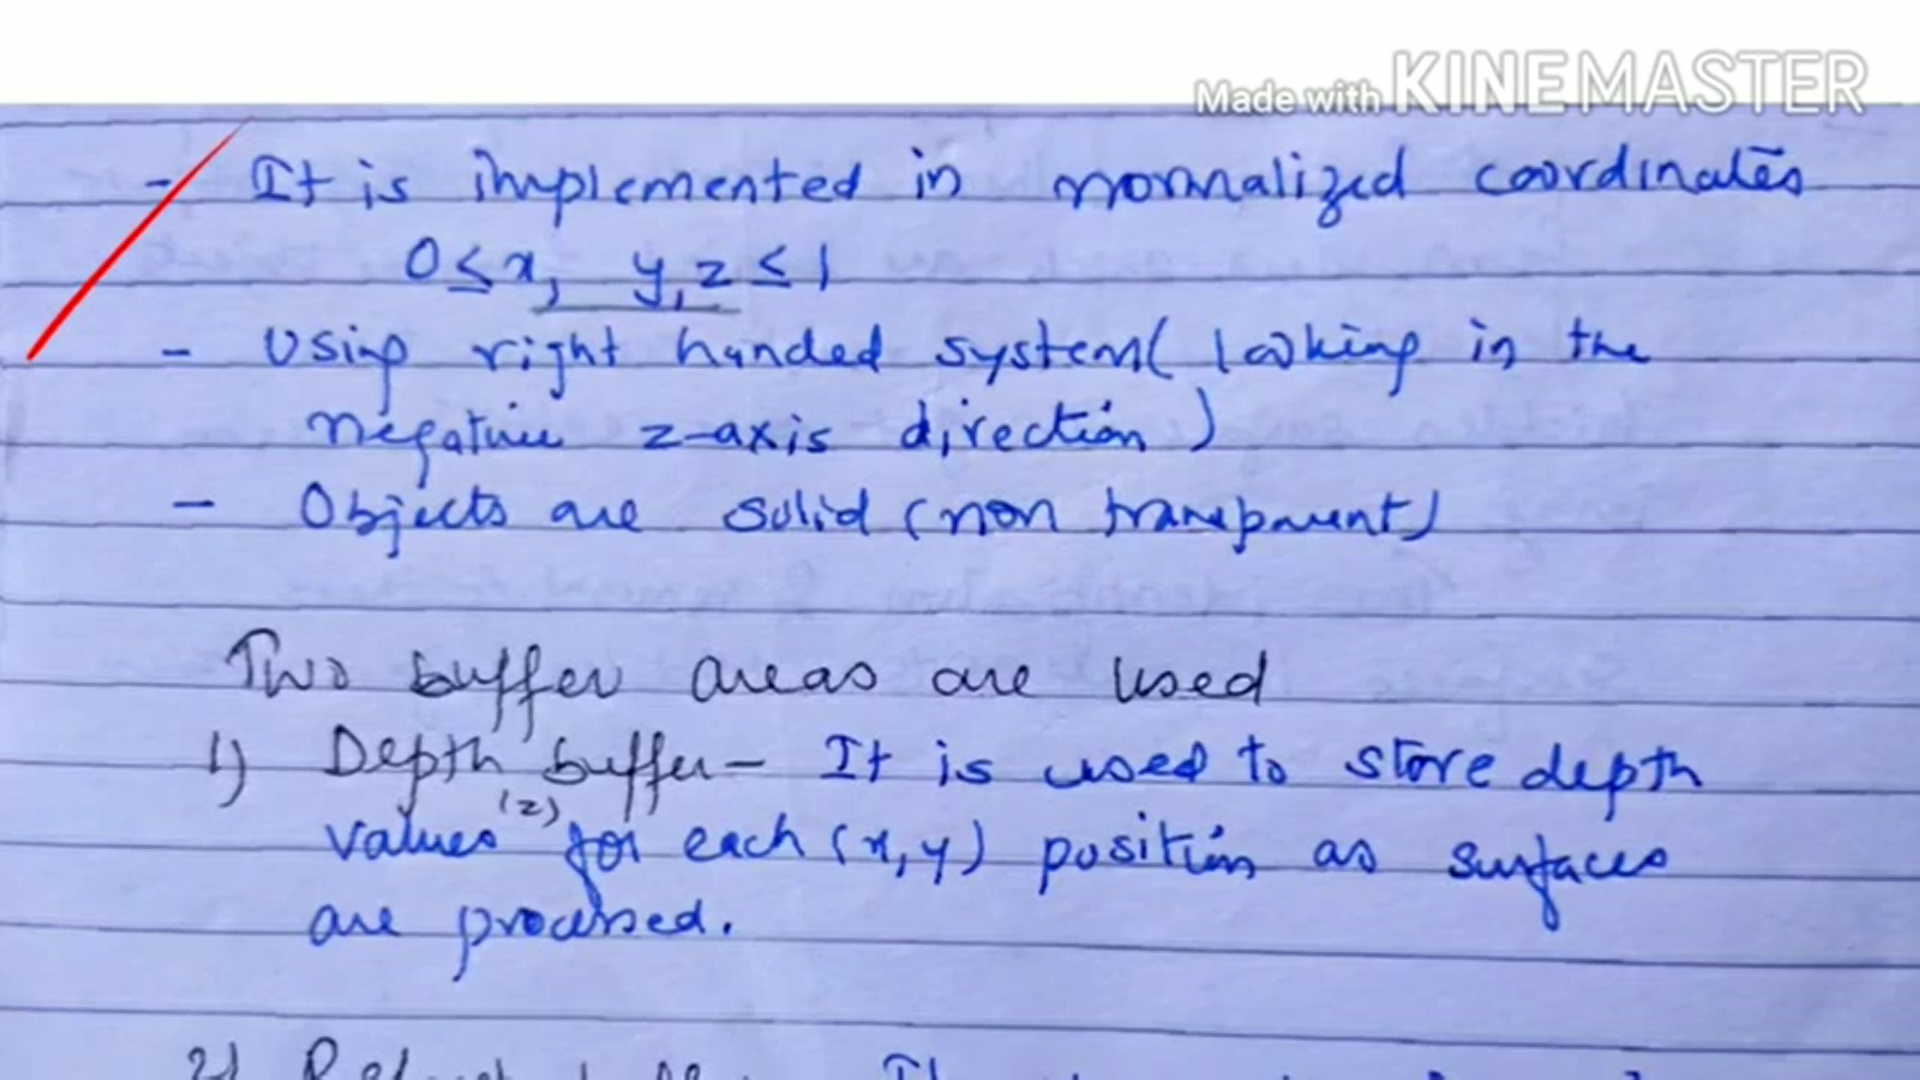 Made with KINEMASTER
- It is implemented in normalized coordinates
0≤x, y,z ≤ 1
- Using right handed system( looking in the
negative z-axis direction)
- Objects are solid (non transparent)
Two buffer areas are used
1) Depth buffer- It is used to store depth
(z)
values for each (x,y) position as surfaces
are processed.
2)